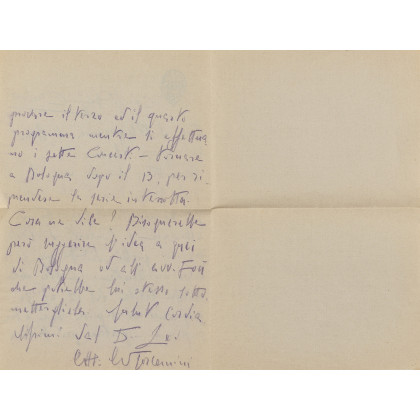 provare il terzo ed il quarto
programma mentre si effettua
no i sette Concerti - Tornare
a Bologna dopo il 13, per ri
prendere la serie interrotta.
Cosa ne dite! Bisognerebbe
però suggerire l'idea a quei
di Bologna od all'avv.
che potrebbe lui stesso sotto
metterglielo. Saluti Cordia
lissimi dal